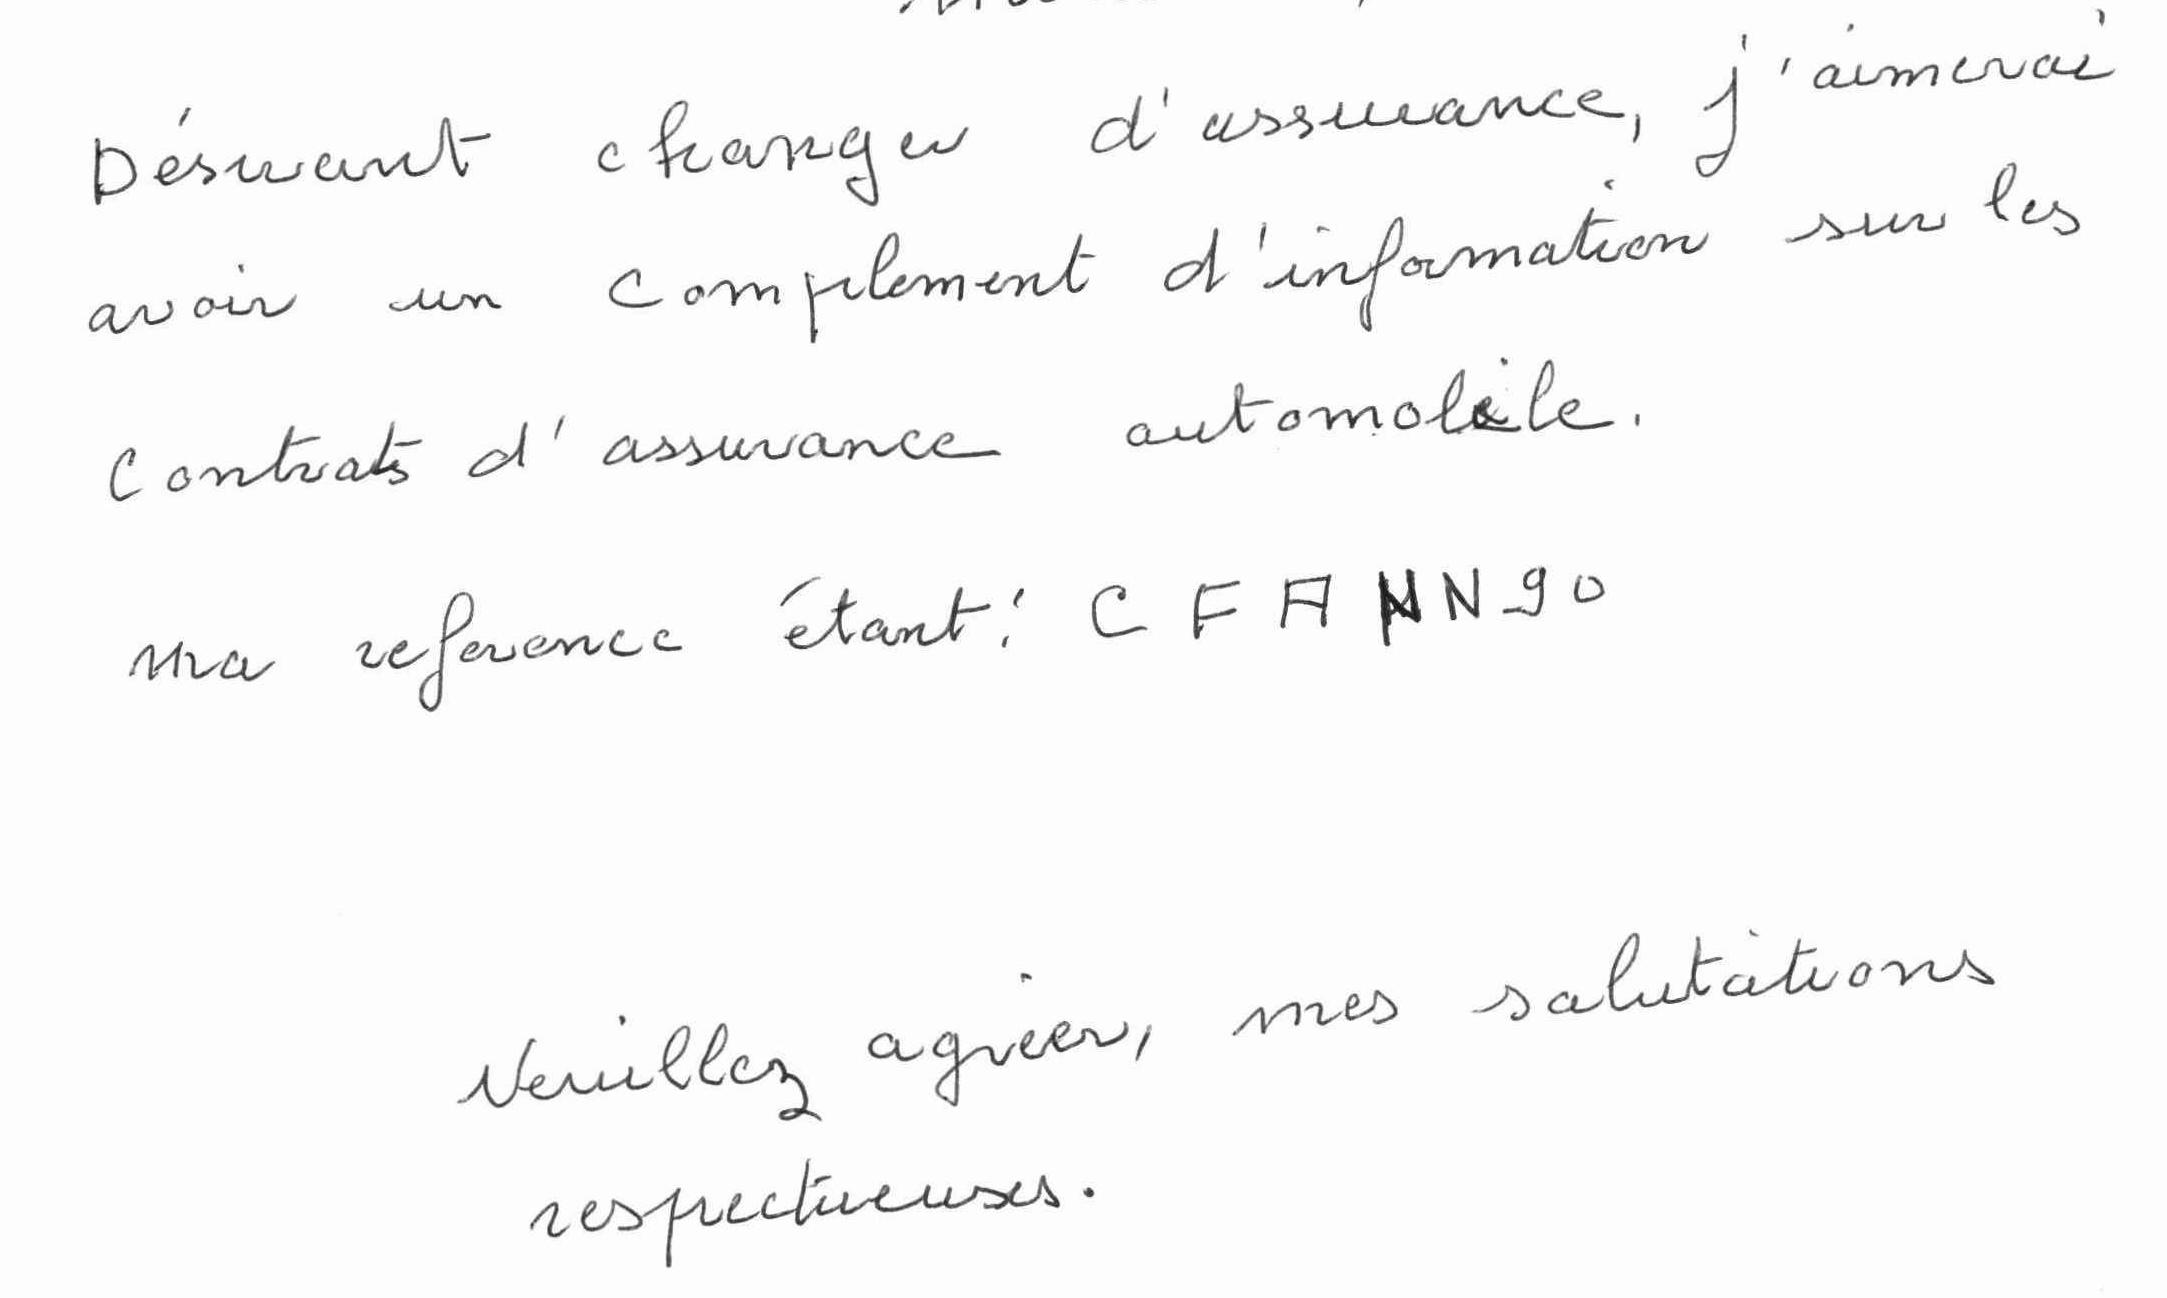 Désirant changer d'assurance, j'aimerai
avoir un complement d'information sur les
contrats d'assurance automobile.
Ma reference étant : CFANN90
Veuillez agréer, mes salutations
respectueuses.